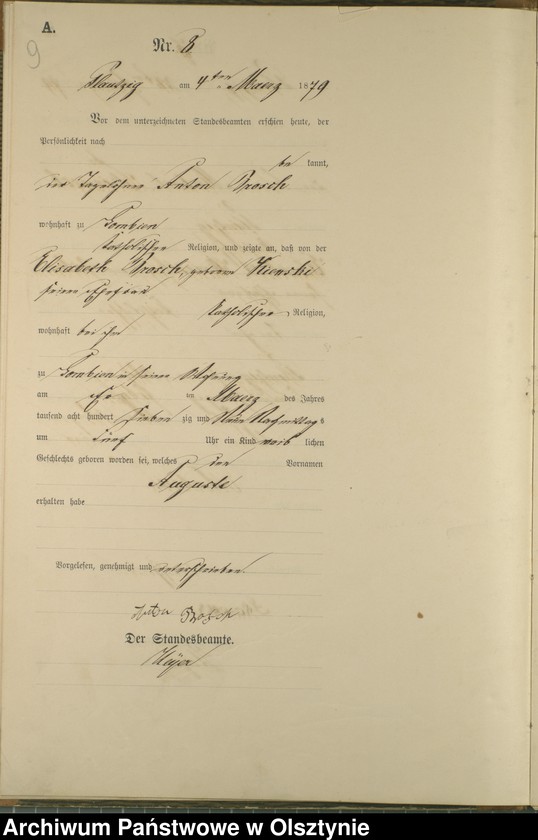 A.
9
Nr. 8
Plautzig am 4ten Maerz 1879
Vor dem unterzeichneten Standesbeamten erschien heute, der
Persönlichkeit nach
be kannt,
der Tagelöhner Anton Brosch
wohnhaft zu
katholischer Religion, und zeigte an, daß von der
Elisabeth Brosch, geborene
seiner Ehefrau
katholischer Religion,
wohnhaft bei ihm
zu in seiner Wohnung
am ten Maerz des Jahres
tausend acht hundert sieben zig und Neun Nachmittags
um fünf Uhr ein Kind weib lichen
Geschlechts geboren worden sei, welches den Vornamen
Auguste
erhalten habe
Vorgelesen, genehmigt und unterschrieben
Anton Brosch
Der Standesbeamte.
Archiwum Państwowe w Olsztynie